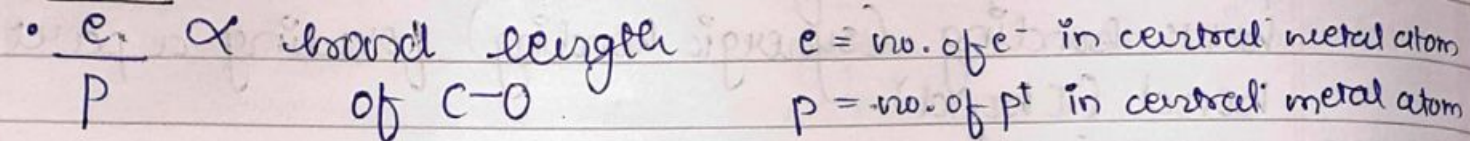 • e. ∝ bond length e = no. of e⁻ in central metal atom
P of C-O p = no. of p⁺ in central metal atom